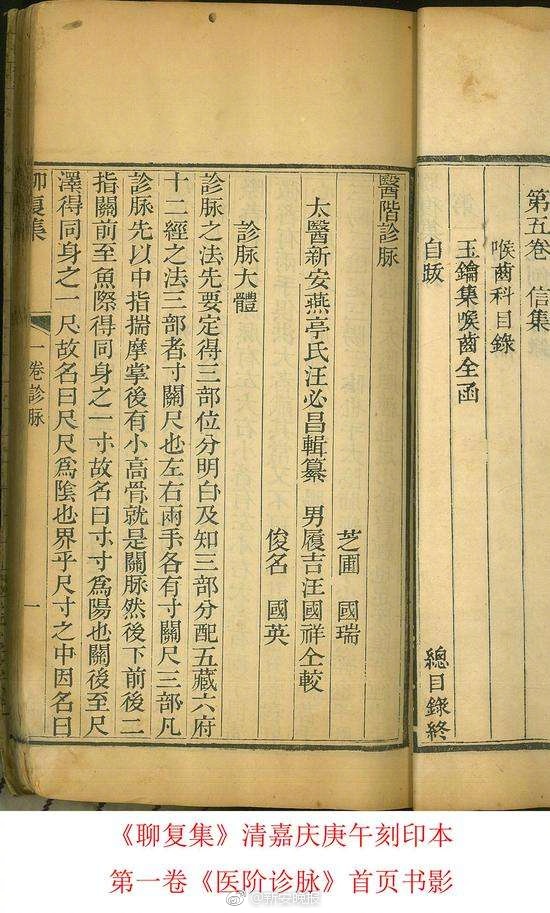 第五卷 信集
喉齒科目錄
玉鑰集喉齒全函
自跋 總目錄終
醫階診脉
芝圃 國瑞
太醫新安燕亭氏汪必昌輯纂 男履吉汪國祥仝較
俊名 國英
診脉大體
診脉之法先要定得三部位分明白及知三部分配五藏六府
十二經之法三部者寸關尺也左右兩手各有寸關尺三部凡
診脉先以中指揣摩掌後有小高骨就是關脉然後下前後二
指關前至魚際得同身之一寸故名曰寸寸爲陽也關後至尺
澤得同身之一尺故名曰尺尺爲陰也界乎尺寸之中因名曰
聊復集 一卷診脉 一
《聊复集》清嘉庆庚午刻印本
第一卷《医阶诊脉》首页书影
@新安晚报